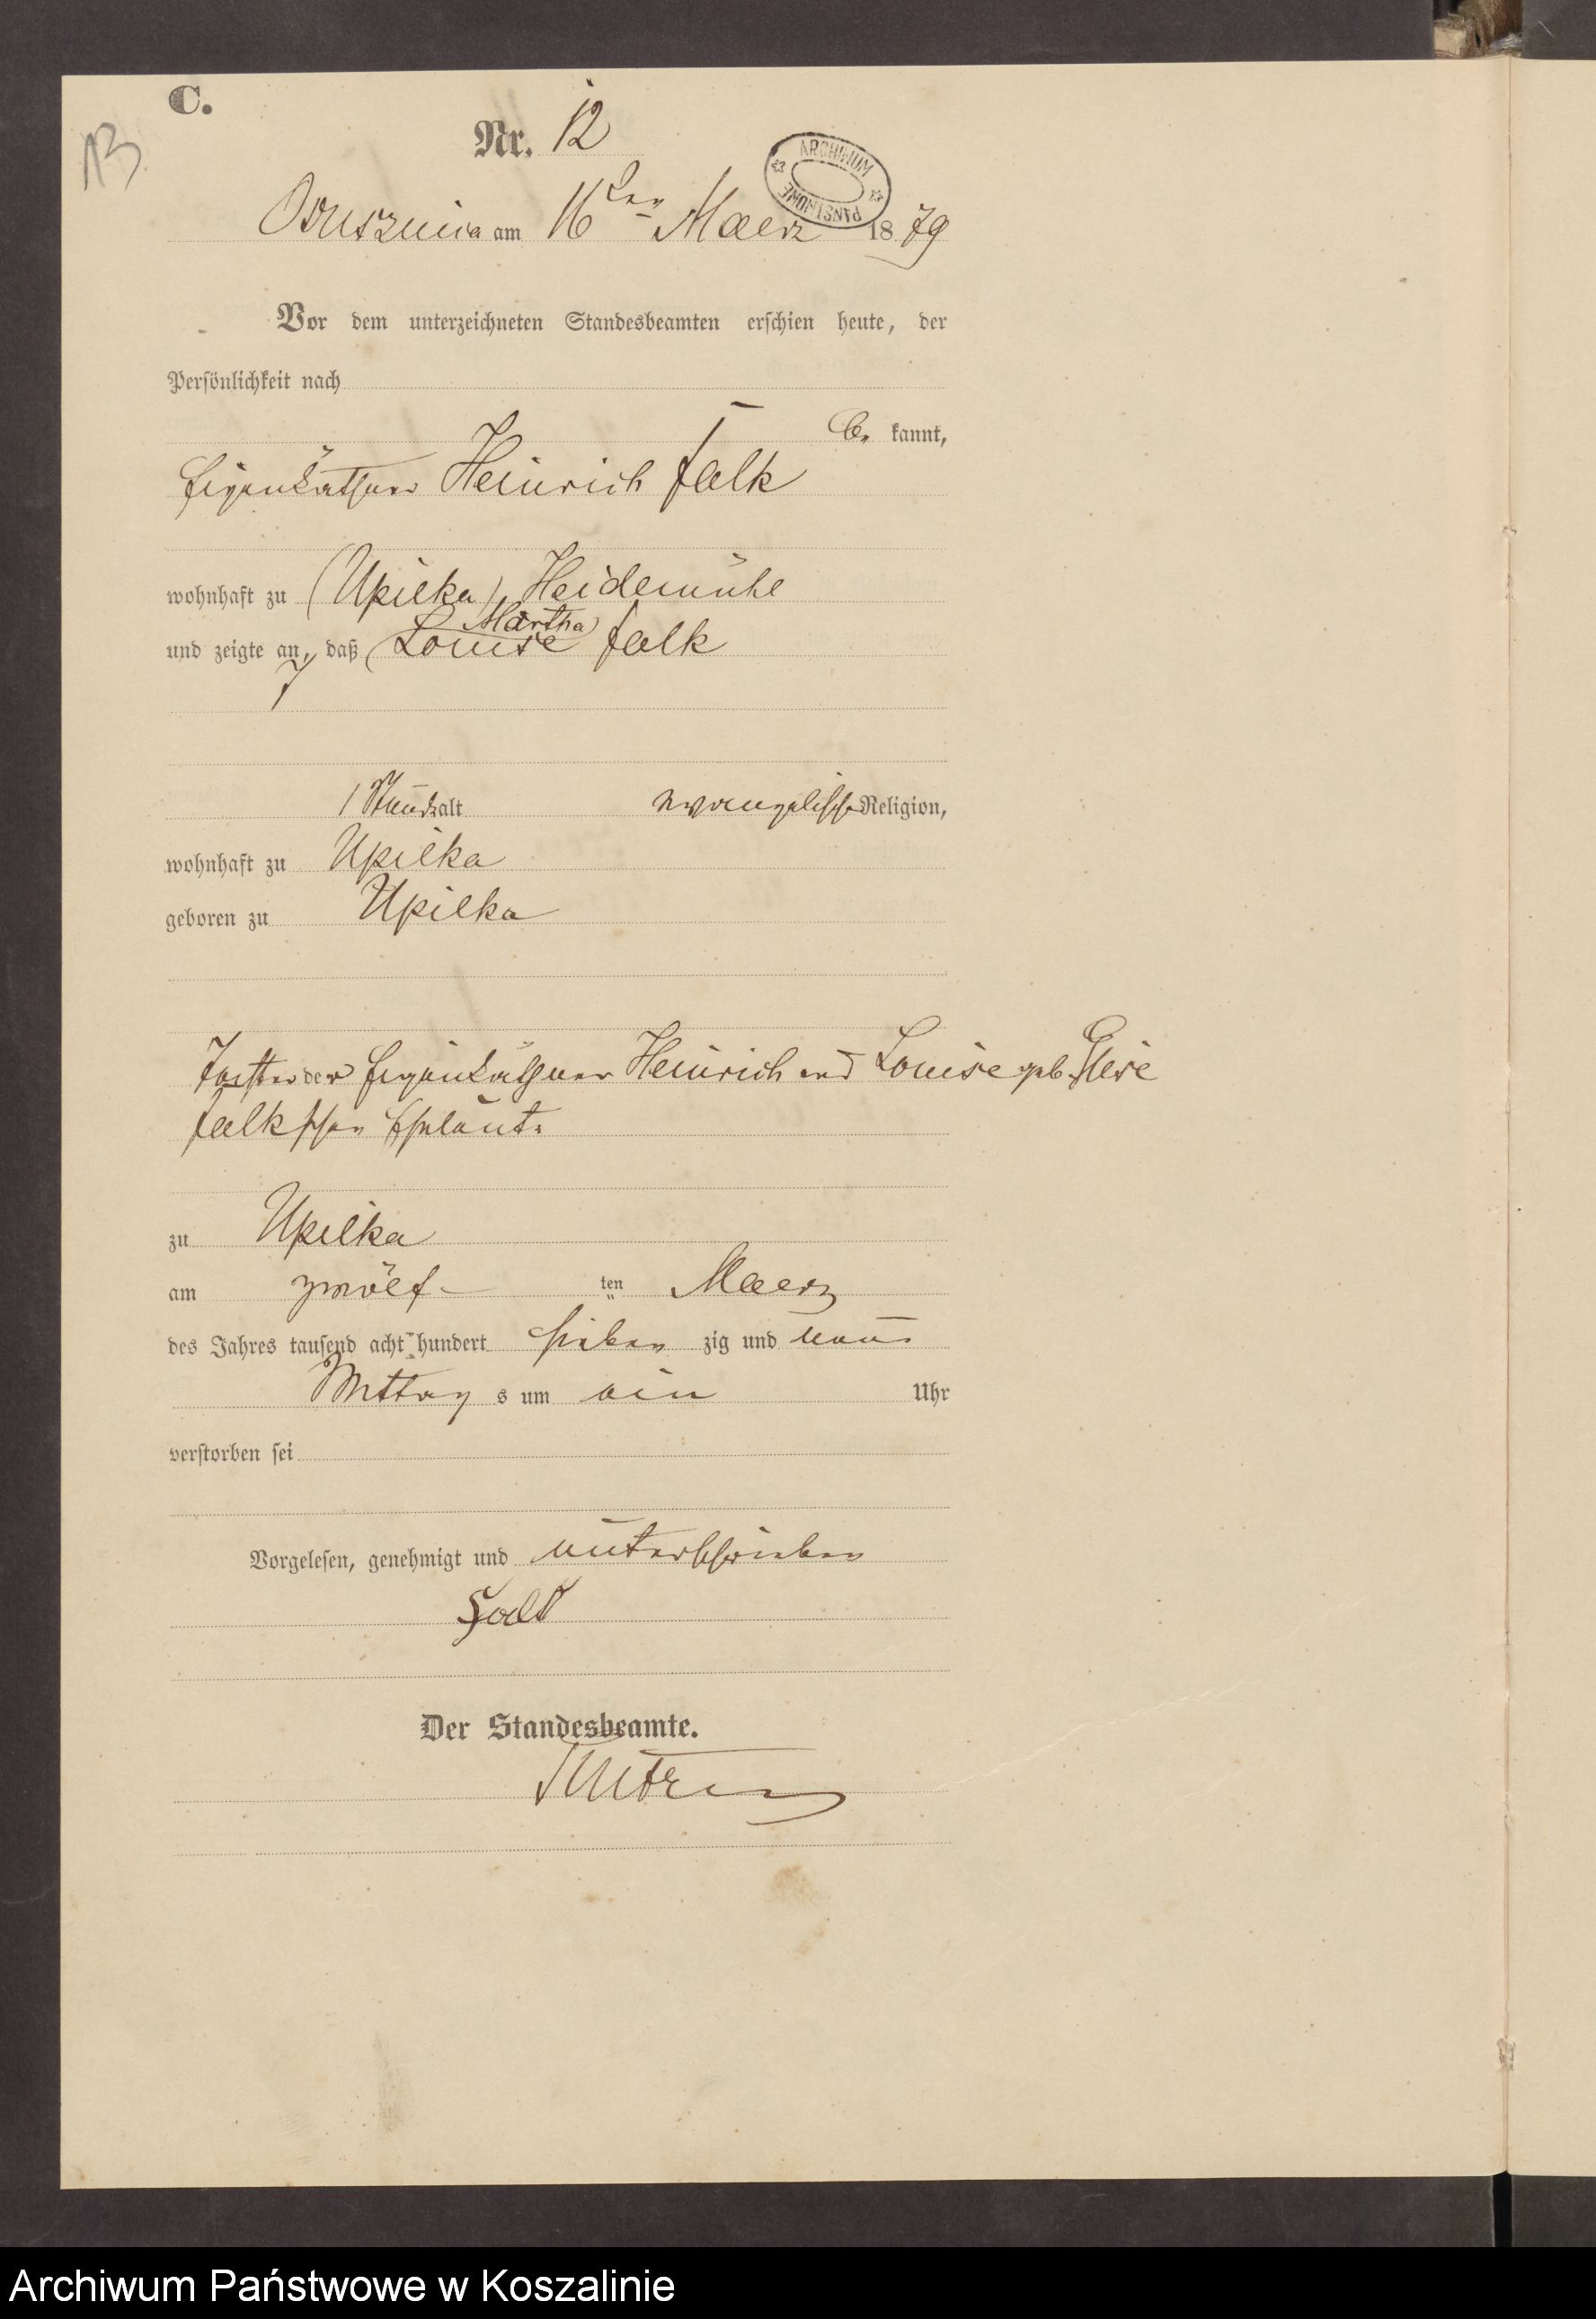 C.
13
Nr. 12
ARCHIWUM PAŃSTWOWE
Ossusznica am 16ten Maerz 1879
Vor dem unterzeichneten Standesbeamten erschien heute, der
Persönlichkeit nach
be kannt,
Eigenkäthner Heinrich Falk
wohnhaft zu (Upilka) Heidemühl
Martha
und zeigte an, daß (Louise) Falk
1 Stunde alt evangelischer Religion,
wohnhaft zu Upilka
geboren zu Upilka
Tochter der Eigenkäthner Heinrich und Louise geb.
Falkschen Eheleute
zu Upilka
am zwölf ten Maerz
des Jahres tausend acht hundert sieben zig und neun
Mittag s um ein Uhr
verstorben sei
Vorgelesen, genehmigt und unterschrieben
Falk
Der Standesbeamte.
Archiwum Państwowe w Koszalinie